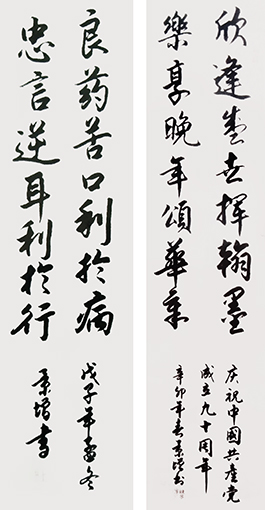 欣逢盛世揮翰墨
樂享晚年頌華章
庆祝中國共產党
成立九十周年
辛卯年春景增书
良药苦口利於病
忠言逆耳利於行
戊子年孟冬
景增书